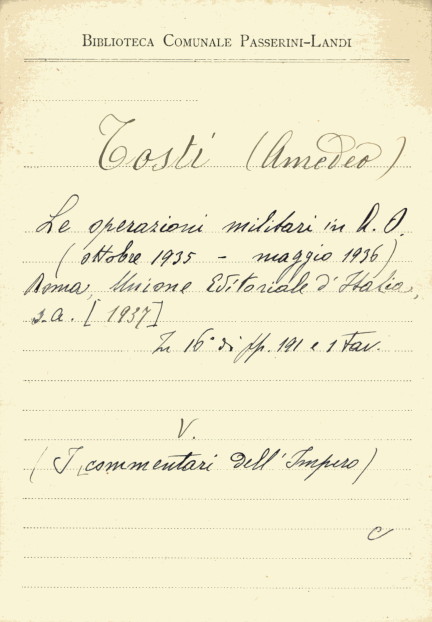 BIBLIOTECA COMUNALE PASSERINI-LANDI
Tosti (Amedeo)
Le operazioni militari in A. O.
(ottobre 1935 - maggio 1936)
Roma, Unione Editoriale d'Italia,
s.a. [1937]
In 16° di pp. 191 e 1 Tav.
V.
(I commentari dell'Impero)
C